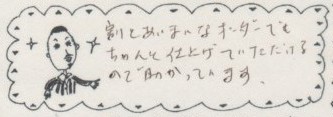 割とあいまいなオーダーでも
ちゃんと仕上げていただける
ので助かっています。